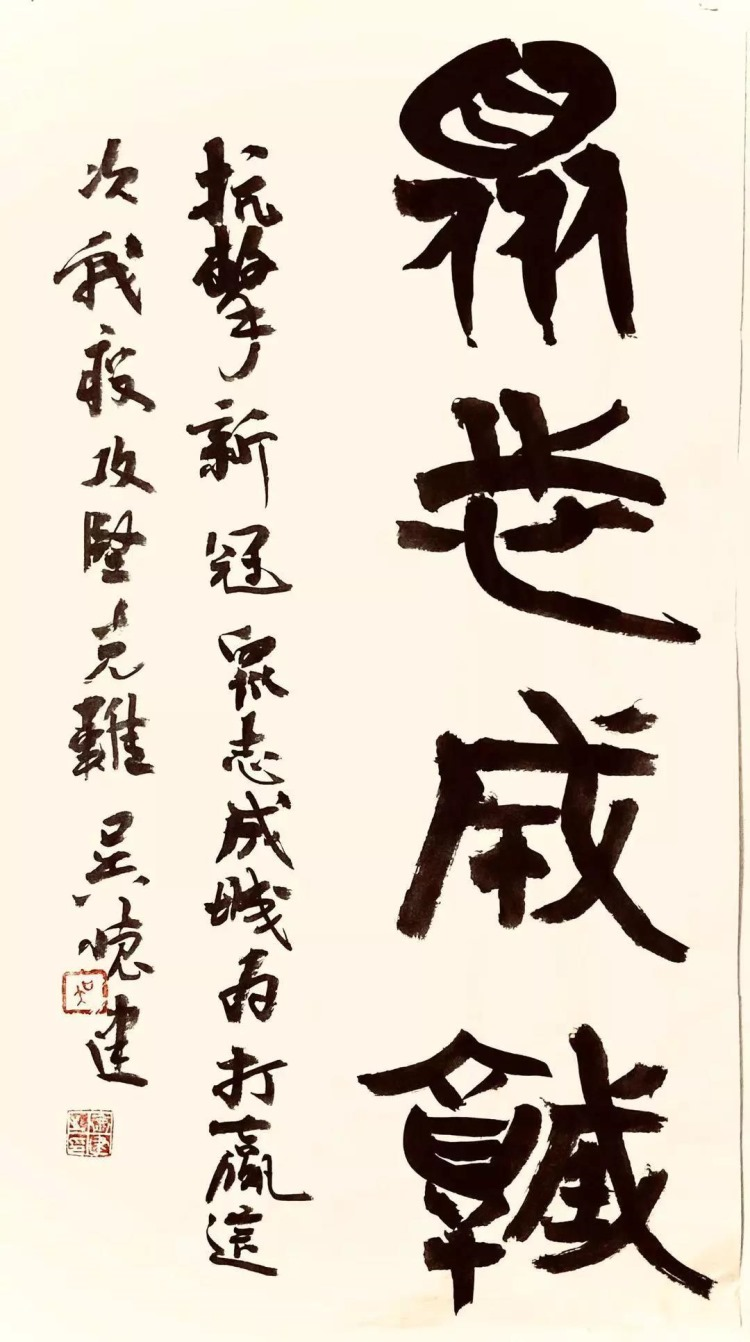 眾志成城
抗擊新冠眾志成城為打贏這
次戰疫攻堅克難 吳建